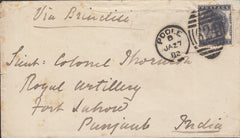 Via Brindisi
POOLE
B
JA 27
82
Lieut: Colonel Thornton
Royal Artillery
Fort Lahore
Punjaub
India